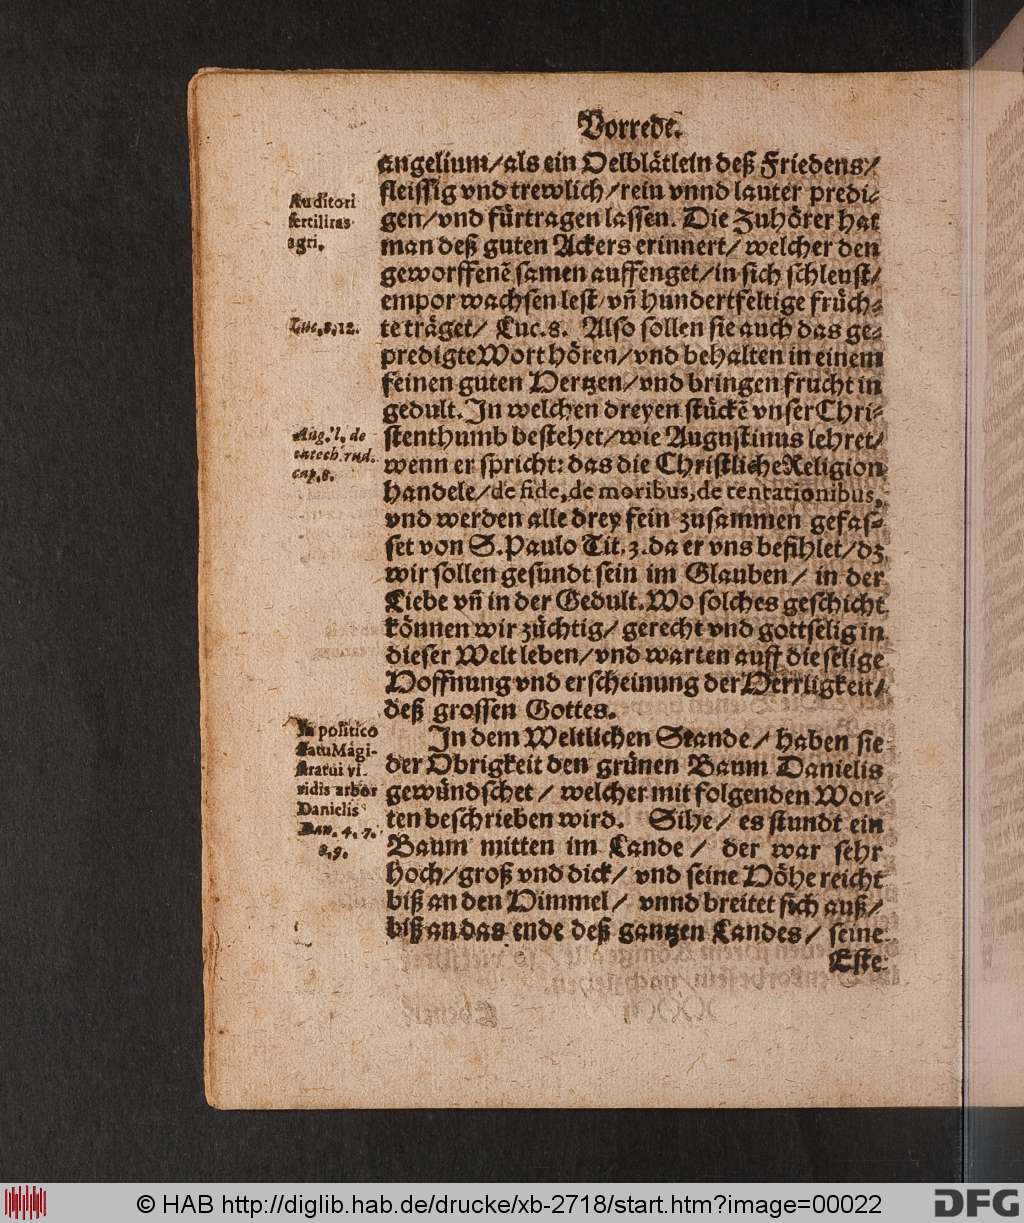 Vorrede.
angelium/als ein Oelblätlein deß Friedens/
fleissig vnd trewlich/rein vnnd lauter predi-
gen/vnd fürtragen lassen. Die Zuhörer hat
man deß guten Ackers erinnert/ welcher den
geworffenē samen auffenget/in sich schleust/
empor wachsen lest/vñ hundertfeltige früch-
te träget/ Luc.8. Also sollen sie auch das ge-
predigte Wort hören/vnd behalten in einem
feinen guten Hertzen/vnd bringen frucht in
gedult. In welchen dreyen stückē vnser Chri-
stenthumb bestehet/wie Augustinus lehret/
wenn er spricht: das die Christliche Religion
handele/de fide, de moribus, de tentationibus,
vnd werden alle drey fein zusammen gefas-
set von S. Paulo Tit.3.da er vns befihlet/dz
wir sollen gesundt sein im Glauben/ in der
Liebe vñ in der Gedult. Wo solches geschicht
können wir züchtig/ gerecht vnd gottselig in
dieser Welt leben/vnd warten auff die selige
Hoffnung vnd erscheinung der Herrligkeit/
deß grossen Gottes.
In dem Weltlichen Stande/ haben sie
der Obrigkeit den grünen Baum Danielis
gewündschet/ welcher mit folgenden Wor-
ten beschrieben wird. Sihe/ es stundt ein
Baum mitten im Lande/ der war sehr
hoch/groß vnd dick/ vnd seine Höhe reicht
biß an den Himmel/ vnnd breitet sich auß/
biß an das ende deß gantzen Landes/ seine
Este
Auditori
fertilitas
agri.
Luc.8.12.
Aug. l. de
catech. rud.
cap.8.
In politico
statu Magi-
stratui vi-
ridis arbor
Danielis
Dan. 4. 7.
8.9.
© HAB http://diglib.hab.de/drucke/xb-2718/start.htm?image=00022
DFG